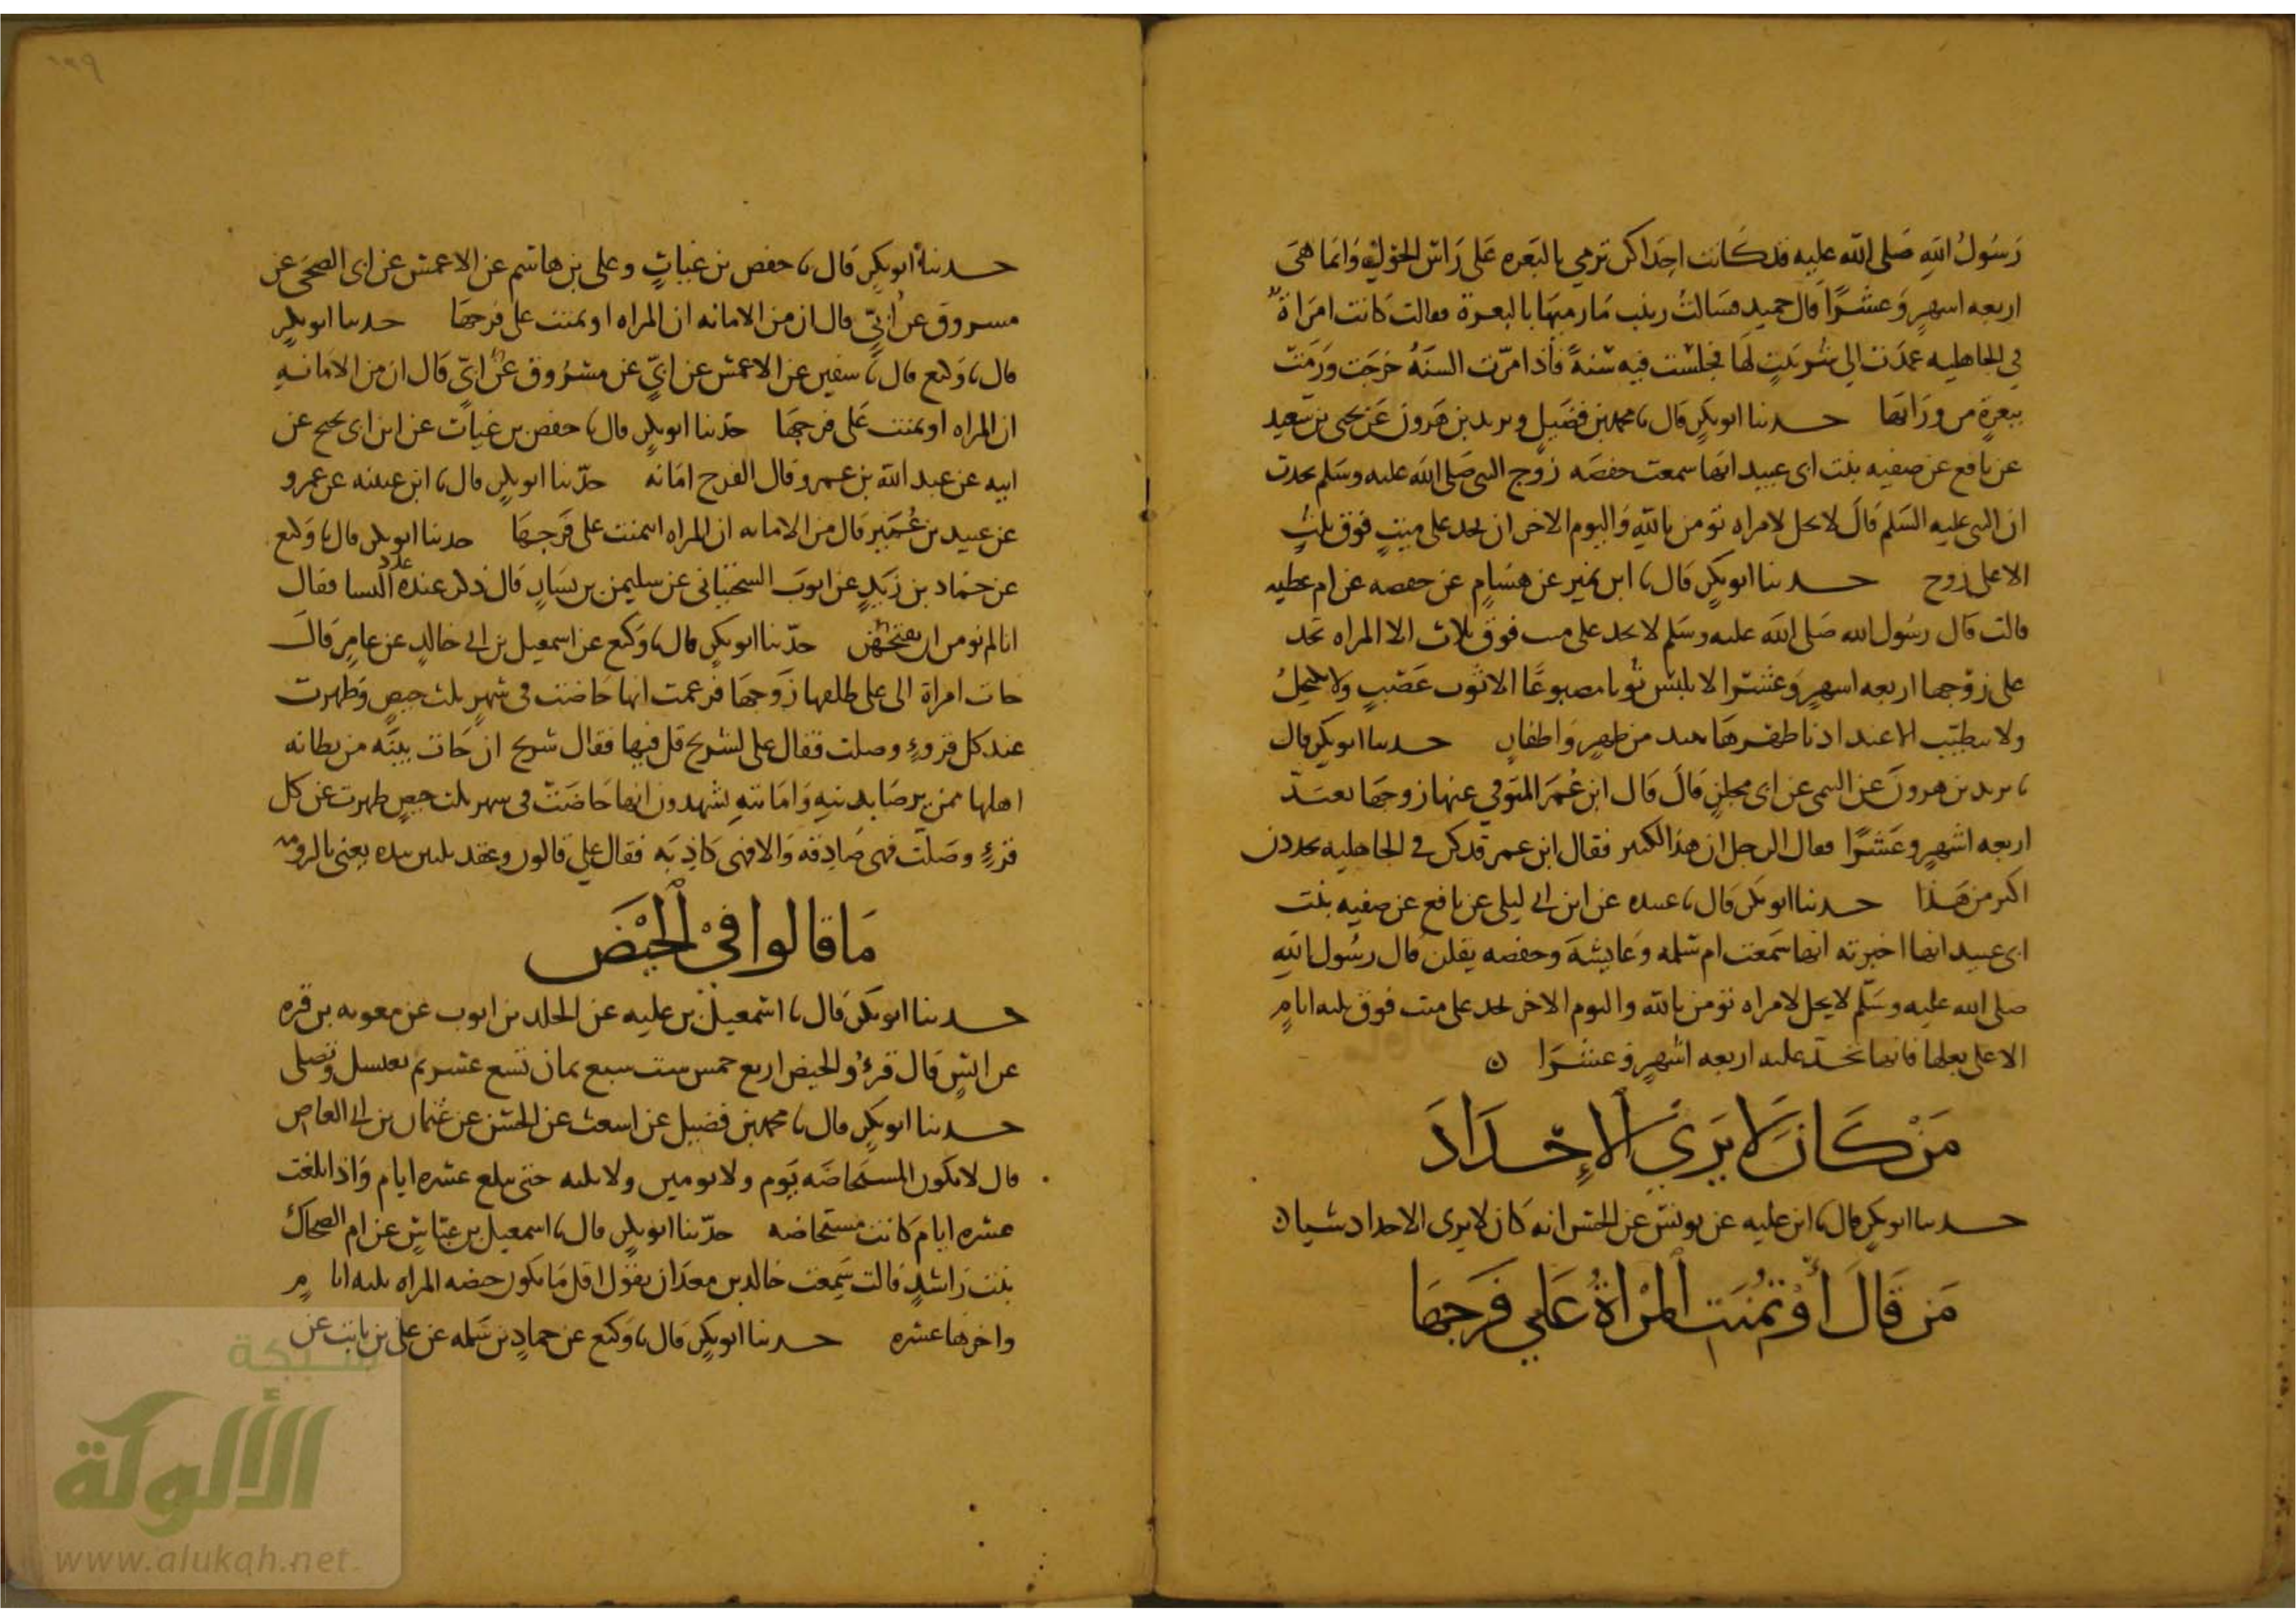 رَسُولُ اللهِ صَلى الله عليه قد كَانت احِدَاكن ترمي بالبَعره عَلى رَاس الحَول وَانمَا هىَ
اربعه اسهرٍ وَعشرًا قال حميد فسَالتُ زينب مَا رميهَا بالبعرة فقالت كَانت امرَاة
في الجاهليه عمدَت الى شر بيتٍ لهَا فجلسَت فيه سَنةً فاذا مرّت السنَهُ خرَجَت وَرَمَت
ببعرةٍ من ورَائها حدثنا ابو بكرٍ قال نا محمد بن فضَيلٍ ويزيد بن هَرون عَن يحيى بن سَعيد
عن نافع عن صفيه بنت ابى عبيد انها سمعت حفصَه زوج النبي صَلى الله عليه وسَلم تحدث
ان النبي عليه السَلم قالَ لا يحل لامراه تؤمن بالله وَاليوم الاخر ان تحد على ميتٍ فوق ثلثٍ
الا على زوج حدثنا ابو بكرٍ قال نا ابن نمير عن هشامٍ عن حفصه عن ام عطيه
قالت قال رسُول الله صَلى الله عليه وسَلم لا يحد على ميت فوق ثلاث الا المراه تحد
على زوجها اربعه اسهرٍ وَعشرا لا تلبس ثوبا مصبوغًا الا ثوب عَصْبٍ ولا تكتحلُ
ولا تطيّب الا عند ادنا طهرهَا بنبذ من طهرٍ وَاظفارٍ حدثنا ابو بكرٍ قال
نا يزيد بن هرونَ عن التيمي عن ابى مجلزٍ قالَ قال ابن عُمَر المتوفي عنها زوجهَا تعتدّ
اربعه اشهرٍ وعَشرًا فقال الرجل ان هذا الكثير فقال ابن عمر قد كن في الجاهليه يحددن
اكثر من هَذا حدثنا ابو بكر قال نا عبده عن ابن ابي ليلى عن نافع عن صفيه بنت
ابى عبيد انها اخبرته انها سَمعت ام سَلمه وَعَايشهَ وحفصه يقلن قال رسُول اللهِ
صلى الله عليه وسَلّم لا يحل لامراه تؤمن بالله واليوم الاخر تحد على ميت فوق ثلثه ايامٍ
الا على بعلها فانها تحدّ عليه اربعه اشهرٍ وَعشرَا ن
مَنْ كَانَ لا يَرَى الاِحْدَادَ
حدثنا ابو بكرٍ قال نا ابن عليه عن يونس عن الحسن انه كَان لا يرى الاحداد شيا ن
مَن قَالَ أوْتُمُنَتِ المرْاةُ عَلي فَرجهَا
حدثنا ابو بكرٍ قال نا حفص بن غياثٍ وعلى بن هاشم عن الاعمش عن ابى الضحى عن
مسروق عن ابيّ قال ان من الامانه ان المراه اوتمنت على فرجهَا حدثنا ابو بكرٍ
قال نا وَكيع قال نا سفين عن الاعمش عن ابيٍّ عن مسْرُوق عن ابيّ قال ان من الامَانهِ
ان المراه اوتمنت عَلى فرجهَا حدّثنا ابو بكرٍ قال نا حفص بن غياث عن ابن ابى نجيح عن
ابيه عن عبد الله بن عمرو قال الفرج امَانه حدّثنا ابو بكرٍ قال نا ابن عيينه عن عمرو
عن عبيد بن عُمَيرٍ قال من الامانه ان المراه ايتمنت على فَرجهَا حدثنا ابو بكر قال نا وَكيع
عن حَماد بن زَيدٍ عن ايوبَ السختياني عن سليمن بن يسَارٍ قال ذكر عنده عدد النسا فقال
انا لم نومر ان نفتحهن حدّثنا ابو بكرٍ قال نا وَكيع عن اسمعيل بن ابي خالدٍ عن عامرٍ قالَ
جات امراة الى على طلقها زَوجهَا فزعمت انها حَاضت في شهرٍ ثلث حيضٍ وَطهرت
عند كل قروءٍ وصلت فقال على لشريح قل فيها فقال شريح ان جَات ببينَه من بطانه
اهلها ممن يرضَا بدينهِ وَامَانتهِ يشهدون انها حَاضَت في سهر ثلث حيضٍ طهرت عن كل
قرءٍ وصَلّت فهى صَادِقه وَالا فهى كَاذِبَه فقال علي قالون وعقد ثلثين بيده يعني بالروميه
مَا قالوا فيْ الحيْضَ
حدثنا ابو بكر قال نا اسْمعيل بن عليه عن الجلد بن ايوب عن معويه بن قره
عن انسٍ قال قرءُ الحيض اربع خمس ست سبع ثمان تسع عشر ثم تغتسل وتصلى
حدثنا ابو بكرٍ قال نا محمد بن فضيل عن اسعث عن الحسَن عن عُثمان بن ابي العاص
قال لا تكون المستحَاضَه يَوم ولا يومين ولا ثلثه حتى تبلغ عشره ايام وَاذا بلغت
عشره ايام كَانت مستحَاضه حدّثنا ابو بكرٍ قال نا اسمعيل بن عيّاشٍ عن ام الضحاك
بنت رَاشدٍ قالت سَمعت خالد بن معدَان يقول اقل مَا تكون حيضه المراه ثلثه ايامٍ
واخرها عشره حدثنا ابو بكرٍ قال نا وَكيع عن حمادٍ بن سَلمه عن على بن ثابت عن
شبكة
الألوكة
www.alukah.net